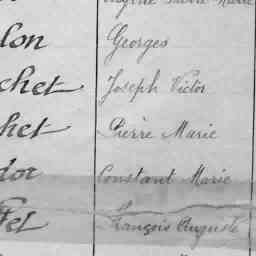 lon Georges
chet Joseph Victor
het Pierre Marie
dor Constant Marie
François Auguste